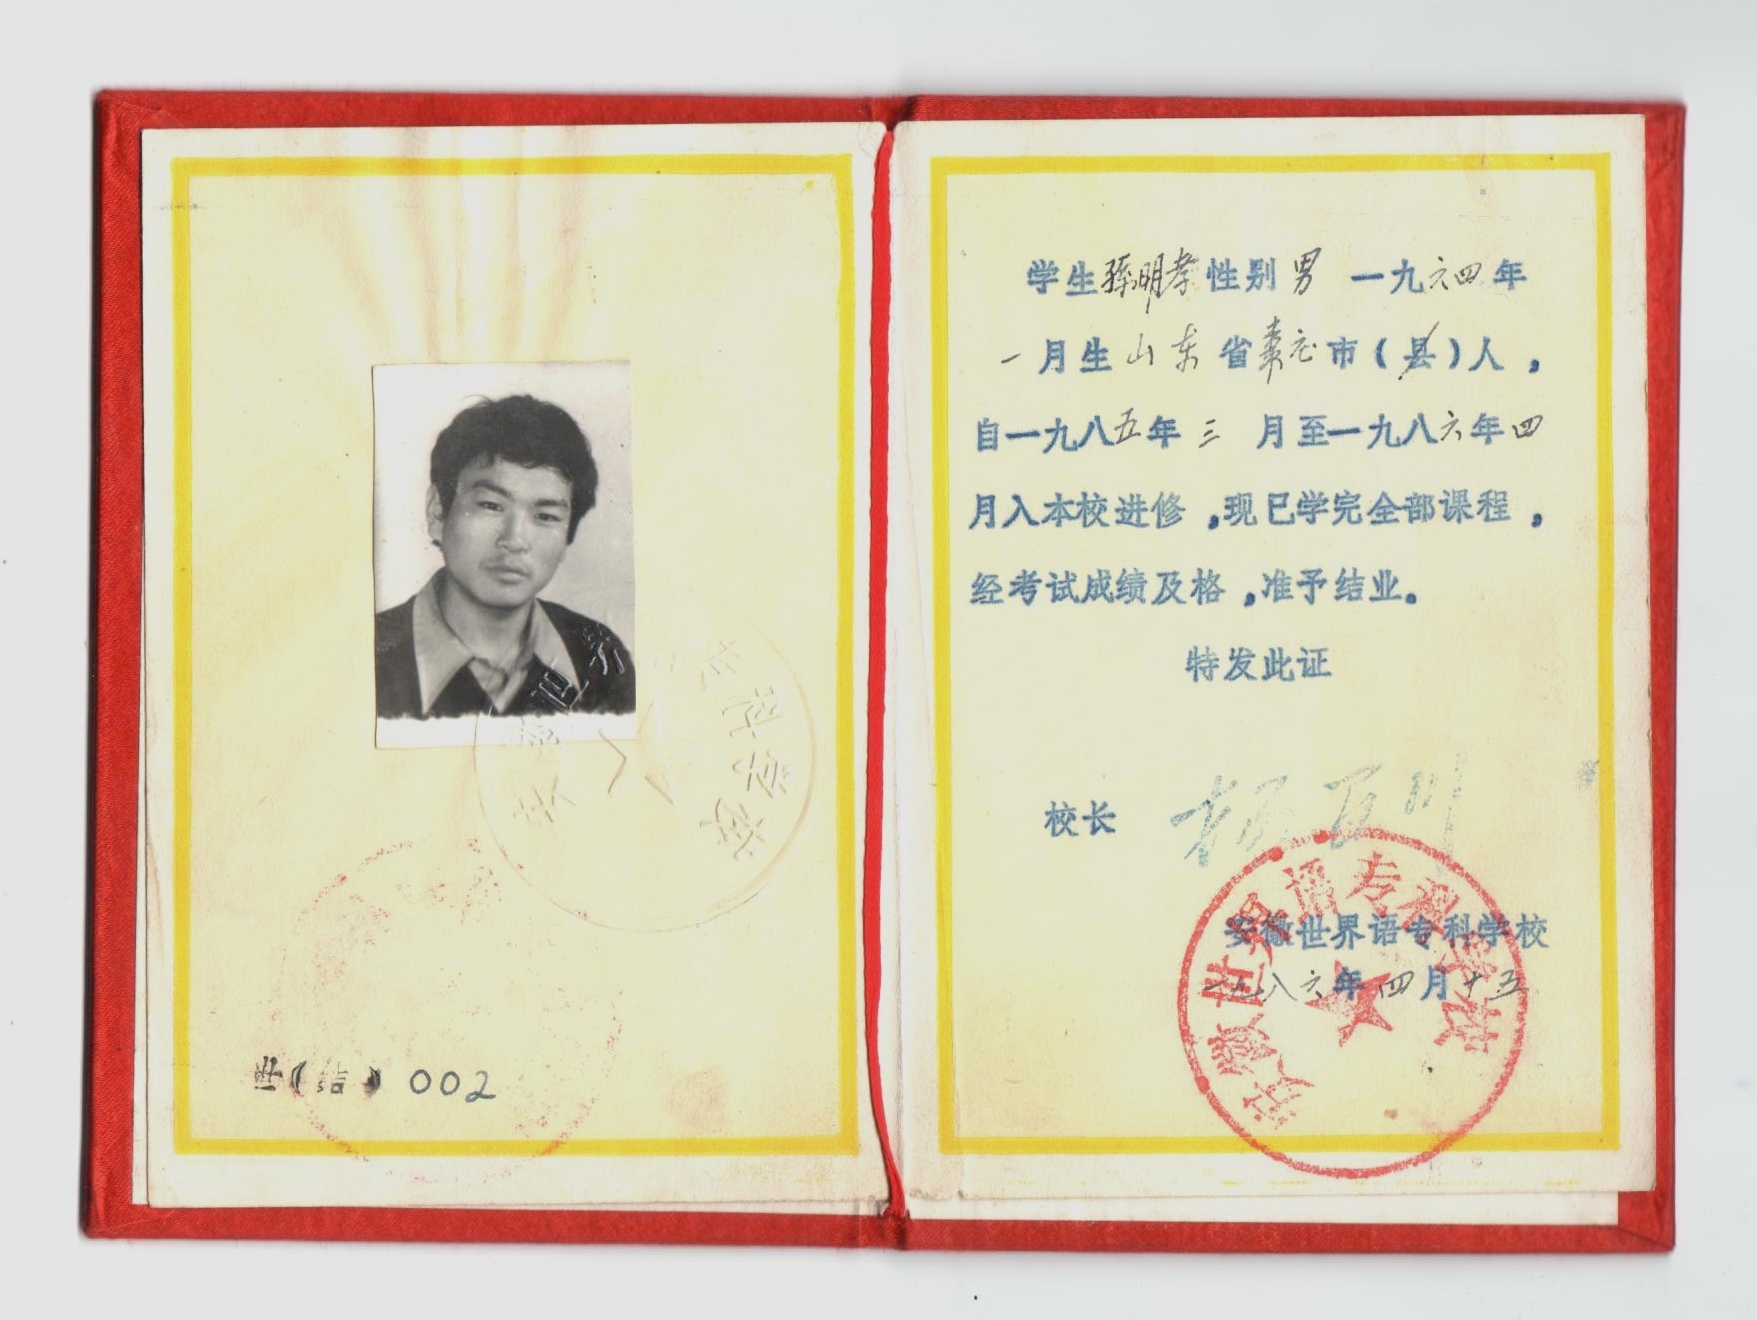 世(结)002
学生孙明孝性别男 一九六四年
一月生山东省枣庄市(县)人,
自一九八五年三月至一九八六年四
月入本校进修,现已学完全部课程,
经考试成绩及格,准予结业。
特发此证
校长
安徽世界语专科学校
一九八六年四月十五
安徽世界语专科学校